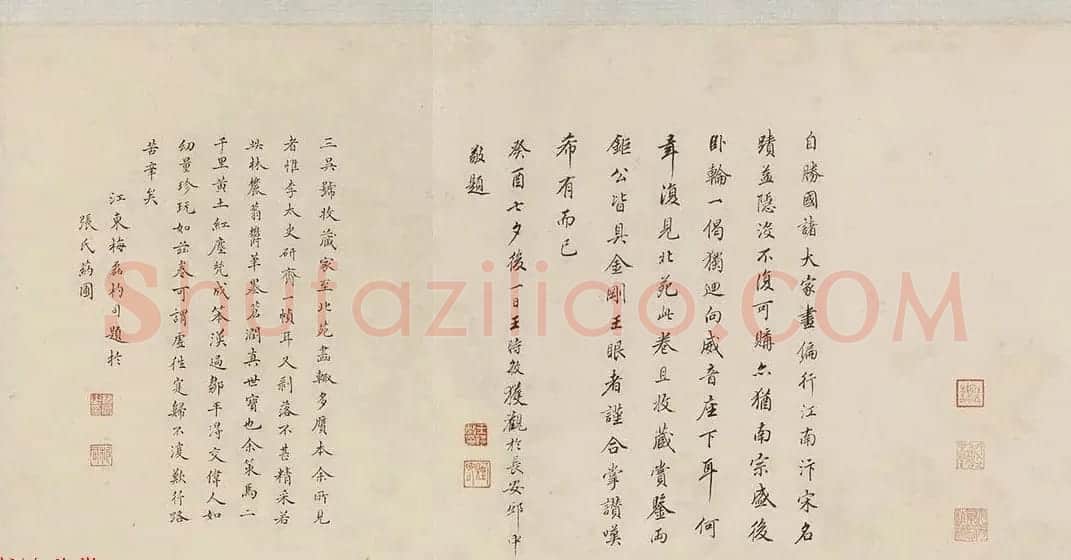 自勝國諸大家畫偏行江南汴宋名
蹟並隱沒不復可購亦猶南宗盛後
卧輪一偈獨迴向威音座下耳何
幸復見北苑此卷且收藏賞鑒兩
鉅公皆具金剛王眼者謹合掌讚嘆
希有而已
癸酉七夕後一日王時敏獲觀於長安邸中
敬題
三吳號收藏家至北苑畫輒多贗本余所見
者惟李太史研齋一幀耳又剥落不甚精采若
此林巖蓊鬱筆墨蒼潤真世寶也余策馬二
千里黃土紅塵梵成笨漢過鄒平得交偉人如
幼量珍玩如茲卷可謂虛往寔歸不復歎行路
苦辛矣
江東梅磊杓司題於
張氏萴圃
Shufaziliao.COM